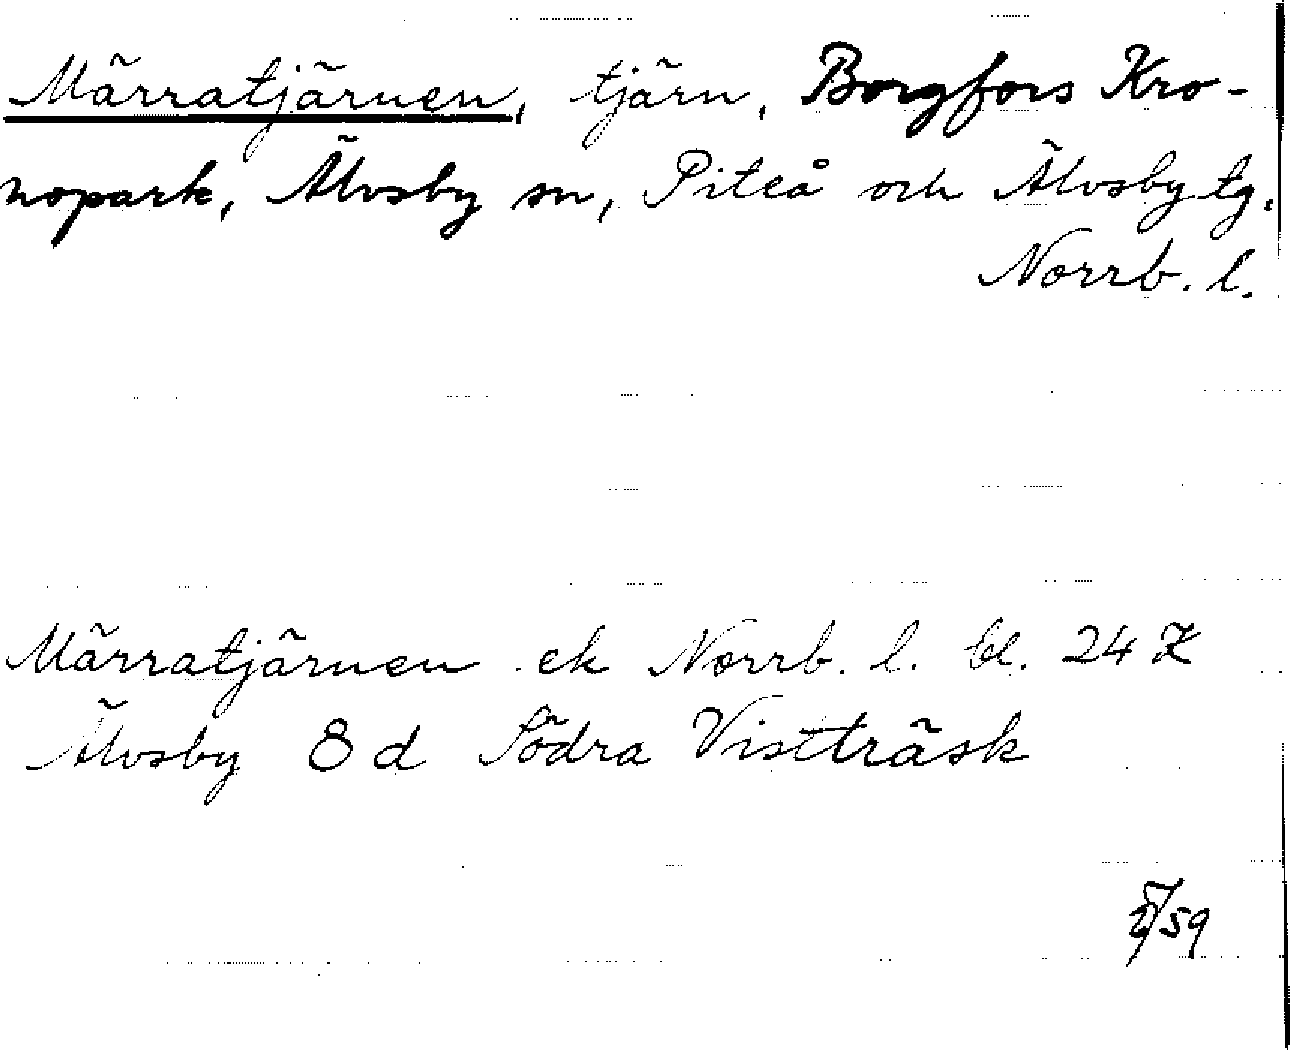 Märratjärnen, tjärn, Borgfors Kro-
nopark, Älvsby sn, Piteå och Älvsby tg.
Norrb. l.
Märratjärnen ek Norrb. l. bl. 24 K
Älvsby 8 d Södra Visträsk